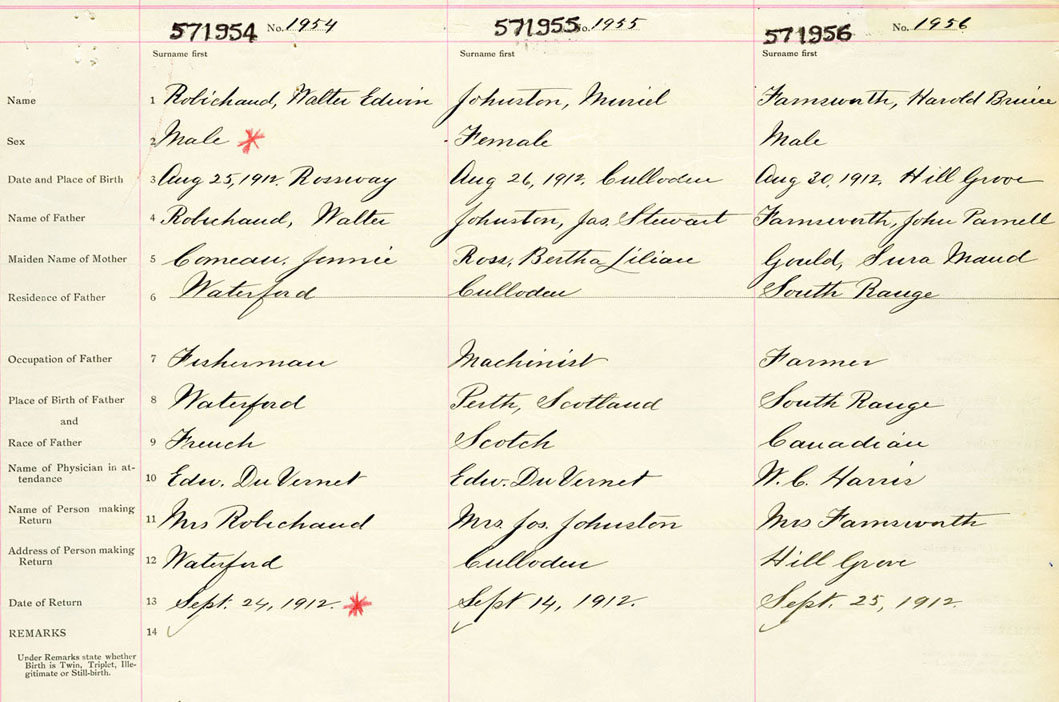 571954 No. 1954 571955 No. 1955 571956 No. 1956
Surname first Surname first Surname first
Name 1 Robichaud, Walter Edwin Johnston, Muriel Farnsworth, Harold
Sex 2 Male Female Male
Date and Place of Birth 3 Aug 25, 1912. Rossway Aug 26, 1912. Culloden Aug 30, 1912. Hill Grove
Name of Father 4 Robichaud, Walter Johnston, Jas. Stewart Farnsworth, John Parnell
Maiden Name of Mother 5 Comeau, Jennie Ross, Bertha Lilian Gould, Maud
Residence of Father 6 Waterford Culloden South Range
Occupation of Father 7 Fisherman Machinist Farmer
Place of Birth of Father 8 Waterford Perth, Scotland South Range
and
Race of Father 9 French Scotch Canadian
Name of Physician in at-
tendance 10 Edw. Du Vernet Edw. Du Vernet W. C. Harris
Name of Person making
Return 11 Mrs Robichaud Mrs. Jos. Johnston Mrs Farnsworth
Address of Person making
Return 12 Waterford Culloden Hill Grove
Date of Return 13 Sept. 24, 1912. Sept 14, 1912. Sept. 25, 1912.
REMARKS 14
Under Remarks state whether
Birth is Twin, Triplet, Ille-
gitimate or Still-birth.